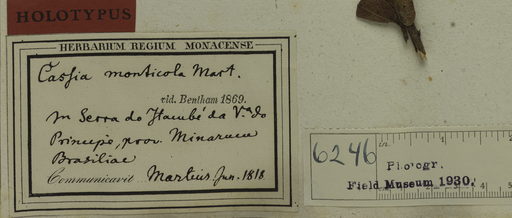 HOLOTYPUS
HERBARIUM REGIUM MONACENSE
Cassia monticola Mart.
vid. Bentham 1869.
in Serra do Itambé da V.ª do
Principe, prov. Minarum
Brasiliae
Communicavit Martius. Jun. 1818
6246
in.
Photogr.
Field Museum 1930.